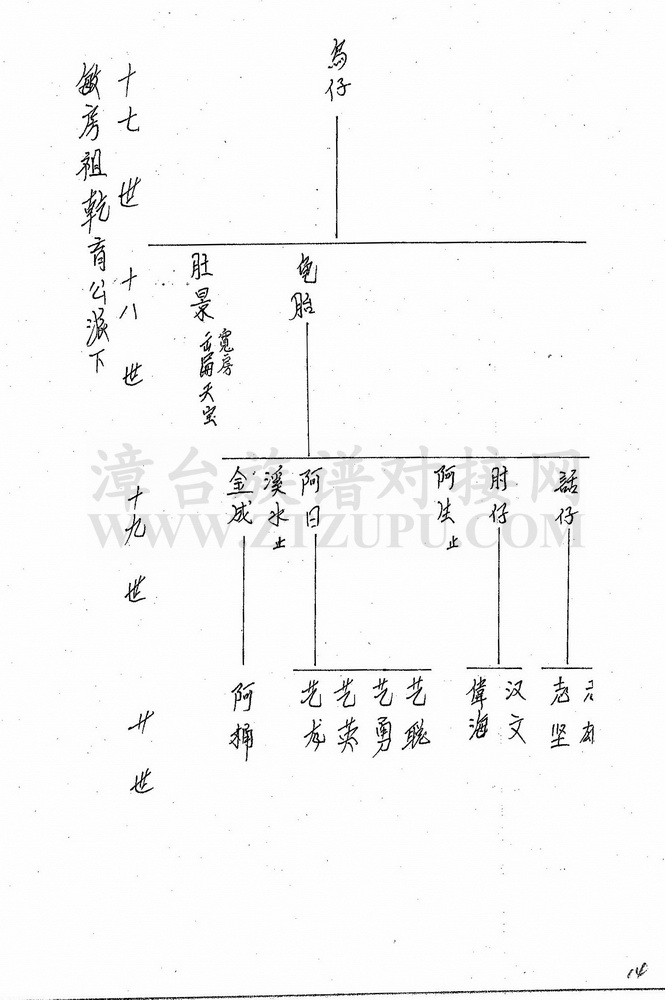 敏房祖乾育公派下
十七世
十八世
十九世
廿世
烏仔
肚景
寬房
天宝
龟胎
金成
溪水止
阿日
阿生止
肘仔
話仔
阿桶
艺龙
艺英
艺勇
艺聪
偉海
汉文
志坚
漳台族谱对接网
WWW.ZTZUPU.COM
14